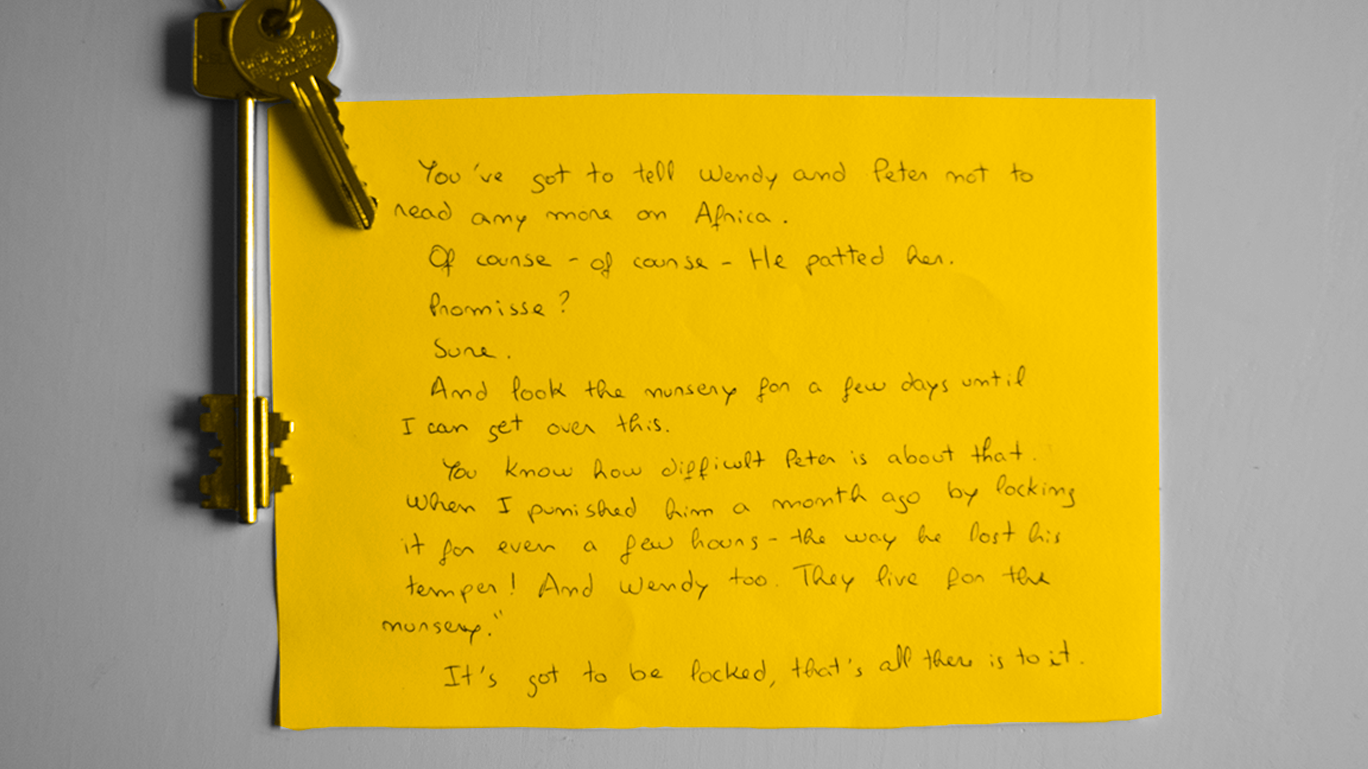 You've got to tell Wendy and Peter not to
read any more on Africa.
Of course - of course - He patted her.
Promisse?
Sure.
And look the nursery for a few days until
I can get over this.
You know how difficult Peter is about that.
When I punished him a month ago by locking
it for even a few hours - the way he lost his
temper! And Wendy too. They live for the
nursery."
It's got to be locked, that's all there is to it.